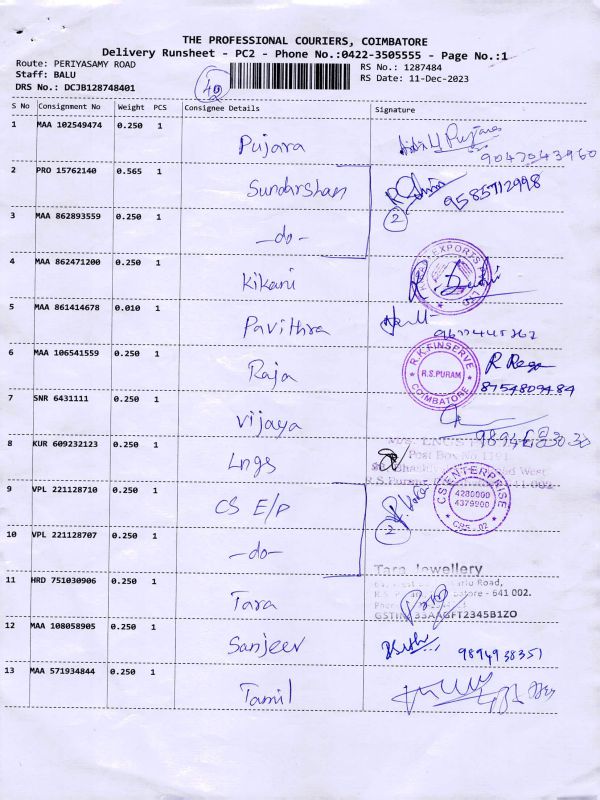 THE PROFESSIONAL COURIERS, COIMBATORE
Delivery Runsheet - PC2 - Phone No.:0422-3505555 - Page No.:1
Route: PERIYASAMY ROAD
RS No.: 1287484
Staff: BALU
RS Date: 11-Dec-2023
DRS No.: DCJB128748401
S No Consignment No Weight PCS Consignee Details Signature
1 MAA 102549474 0.250 1 Pujara
9047043960
2 PRO 15762140 0.565 1 Sundarshan
9585712998
2
3 MAA 862893559 0.250 1 -do-
4 MAA 862471200 0.250 1 Kikani
EXPORTS
5 MAA 861414678 0.010 1 Pavithra
6 MAA 106541559 0.250 1 Raja
R.K.FINSERVE
R.S.PURAM
COIMBATORE
8754809484
7 SNR 6431111 0.250 1 Vijaya
8 KUR 609232123 0.250 1 Lngs
Post Box No.1191
West
R.S.Puram
9 VPL 221128710 0.250 1 CS E/P
CS ENTERPRISE
4280000
4379900
CBE - 02
2
10 VPL 221128707 0.250 1 -do-
11 HRD 751030906 0.250 1 Tara
Tara Jewellery
Road,
641 002.
12 MAA 108058905 0.250 1 Sanjeev
9894938351
13 MAA 571934844 0.250 1 Tamil